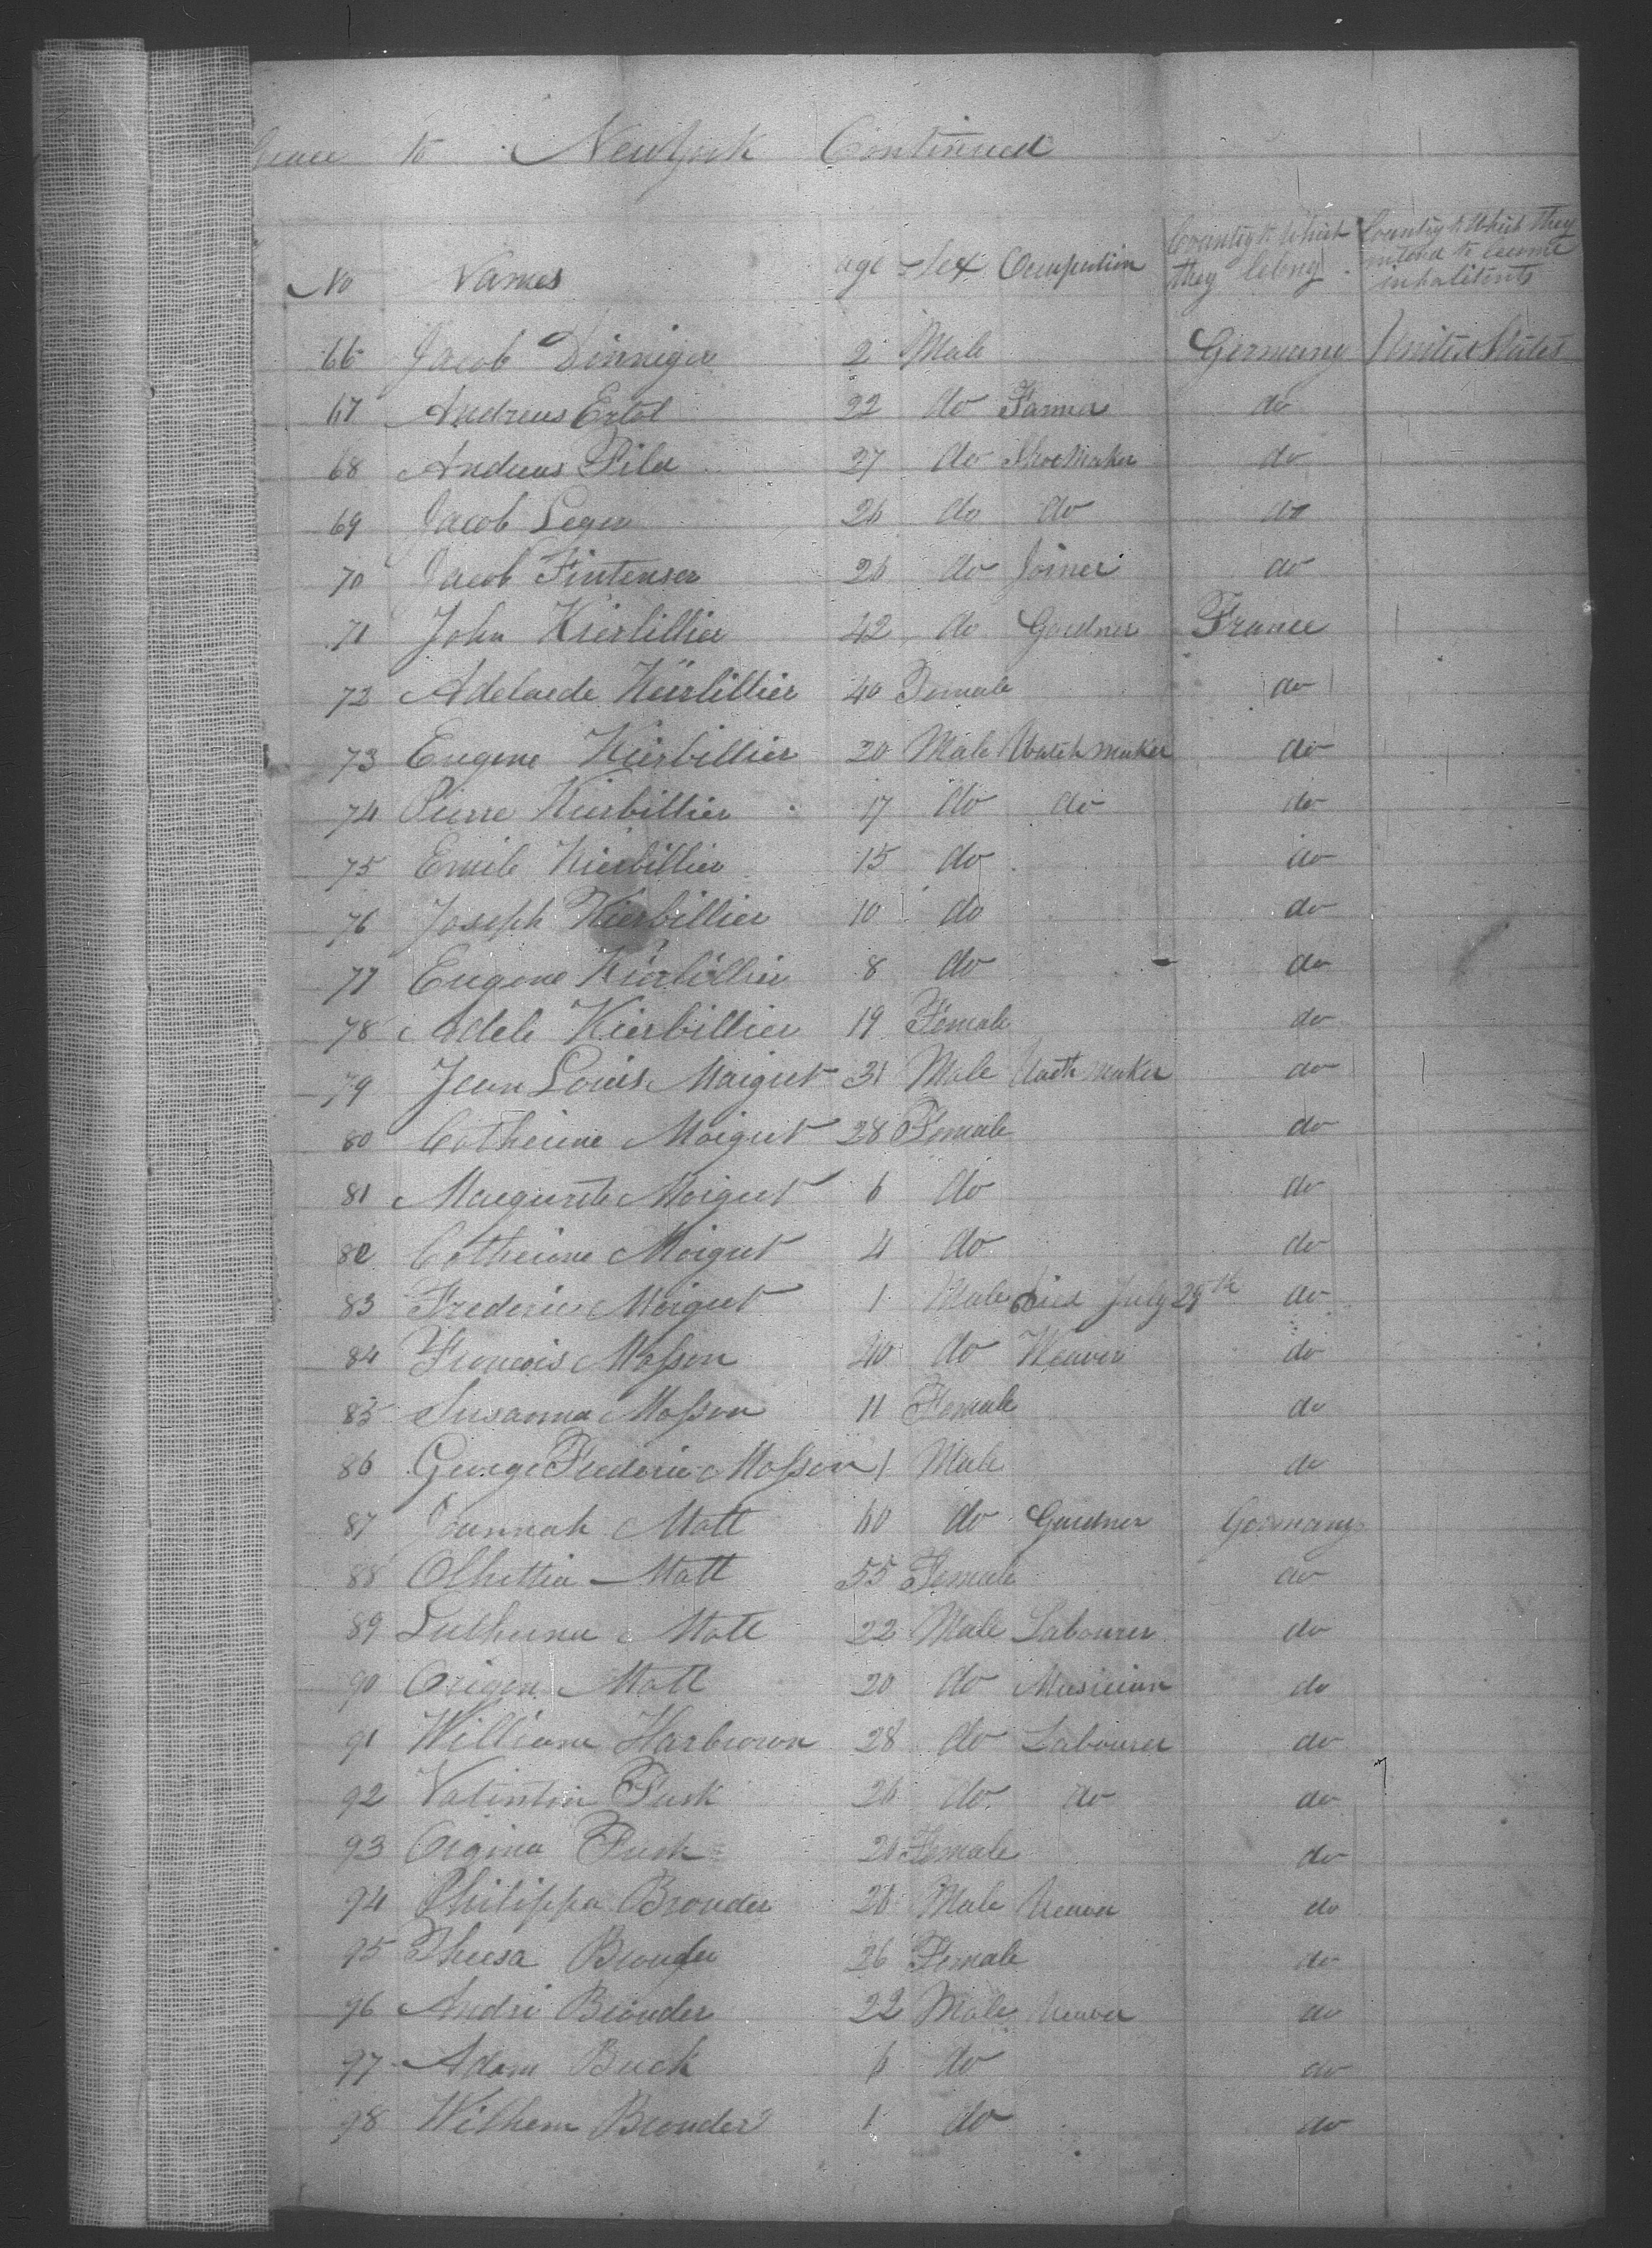 to New York Continued
No Names age Sex Occupation Country to Which they belong Country to Which they intend to become inhabitants
66 Jacob Dinniger 2 Male Germany United States
67 Andreus Ertol 22 do Farmer do
68 Andreas Piler 27 do Shoe Maker do
69 Jacob Leger 26 do do do
70 Jacob Fintenser 26 do Joiner do
71 John Kierbillier 42 do Gardner France
72 Adelaede Kierbillier 40 Female do
73 Eugene Kierbillier 20 Male Watch maker do
74 Pierre Kierbillier 17 do do do
75 Emile Kierbillier 15 do do
76 Joseph Kierbillier 10 do do
77 Eugene Kierbillier 8 do do
78 Adele Kierbillier 19 Female do
79 Jean Louis Maigret 31 Male Watch Maker do
80 Catherine Maigret 28 Female do
81 Marguerite Maigret 6 do do
82 Catherine Maigret 4 do do
83 Frederic Maigret 1 Male Died July 29th do
84 Francois Masson 40 do Weaver do
85 Susanna Masson 11 Female do
86 George Frederic Masson 1 Male do
87 Matt 60 do Gardner Germany
88 Matt 55 Female do
89 Matt 22 Male Labourer do
90 Origen Matt 20 do Musician do
91 William Harbrown 28 do Labourer do
92 Valintin Pusk 26 do do do
93 Orgina Pusk 20 Female do
94 Philippa Brouder 28 Male Weaver do
95 Theesa Brouder 26 Female do
96 Andri Brouder 22 Male Weaver do
97 Adam Buck 6 do do
98 Wilhem Brouder 1 do do